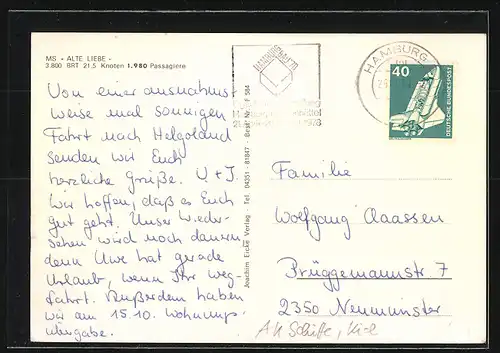 MS - ALTE LIEBE -
3.800 BRT 21,5 Knoten 1.980 Passagiere
Von einer ausnahms
weise mal sonnigen
Fahrt nach Helgoland
senden wir Euch
herzliche Grüße. U + J.
Wir hoffen, daß es Euch
gut geht. Unser Wieder-
sehen wird noch dauern,
denn Uwe hat gerade
Urlaub, wenn Ihr weg-
fahrt. Außerdem haben
wir am 15.10. Wohnungs-
übergabe.
Joachim Eicke Verlag Tel. 04351-81847 Bestell Nr. F 504
HAMBURG
40
DEUTSCHE BUNDESPOST
Familie
Wolfgang Claassen
Brüggemannstr 7
2350 Neumünster
AK Schiffe, Kiel